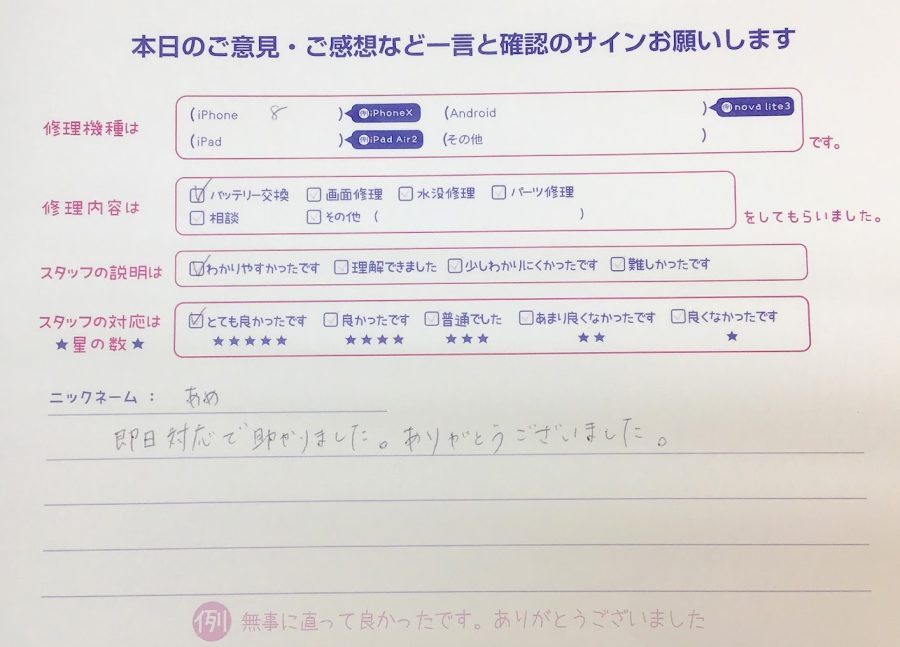 本日のご意見・ご感想など一言と確認のサインお願いします
修理機種は
(iPhone 8 ) 例iPhoneX (Android ) 例nova lite3
(iPad ) 例iPad Air2 (その他 )
です。
修理内容は
バッテリー交換 画面修理 水没修理 パーツ修理
相談 その他 ( )
をしてもらいました。
スタッフの説明は
わかりやすかったです 理解できました 少しわかりにくかったです 難しかったです
スタッフの対応は
★星の数★
とても良かったです 良かったです 普通でした あまり良くなかったです 良くなかったです
★★★★★ ★★★★ ★★★ ★★ ★
ニックネーム: あめ
即日対応で助かりました。ありがとうございました。
例 無事に直って良かったです。ありがとうございました